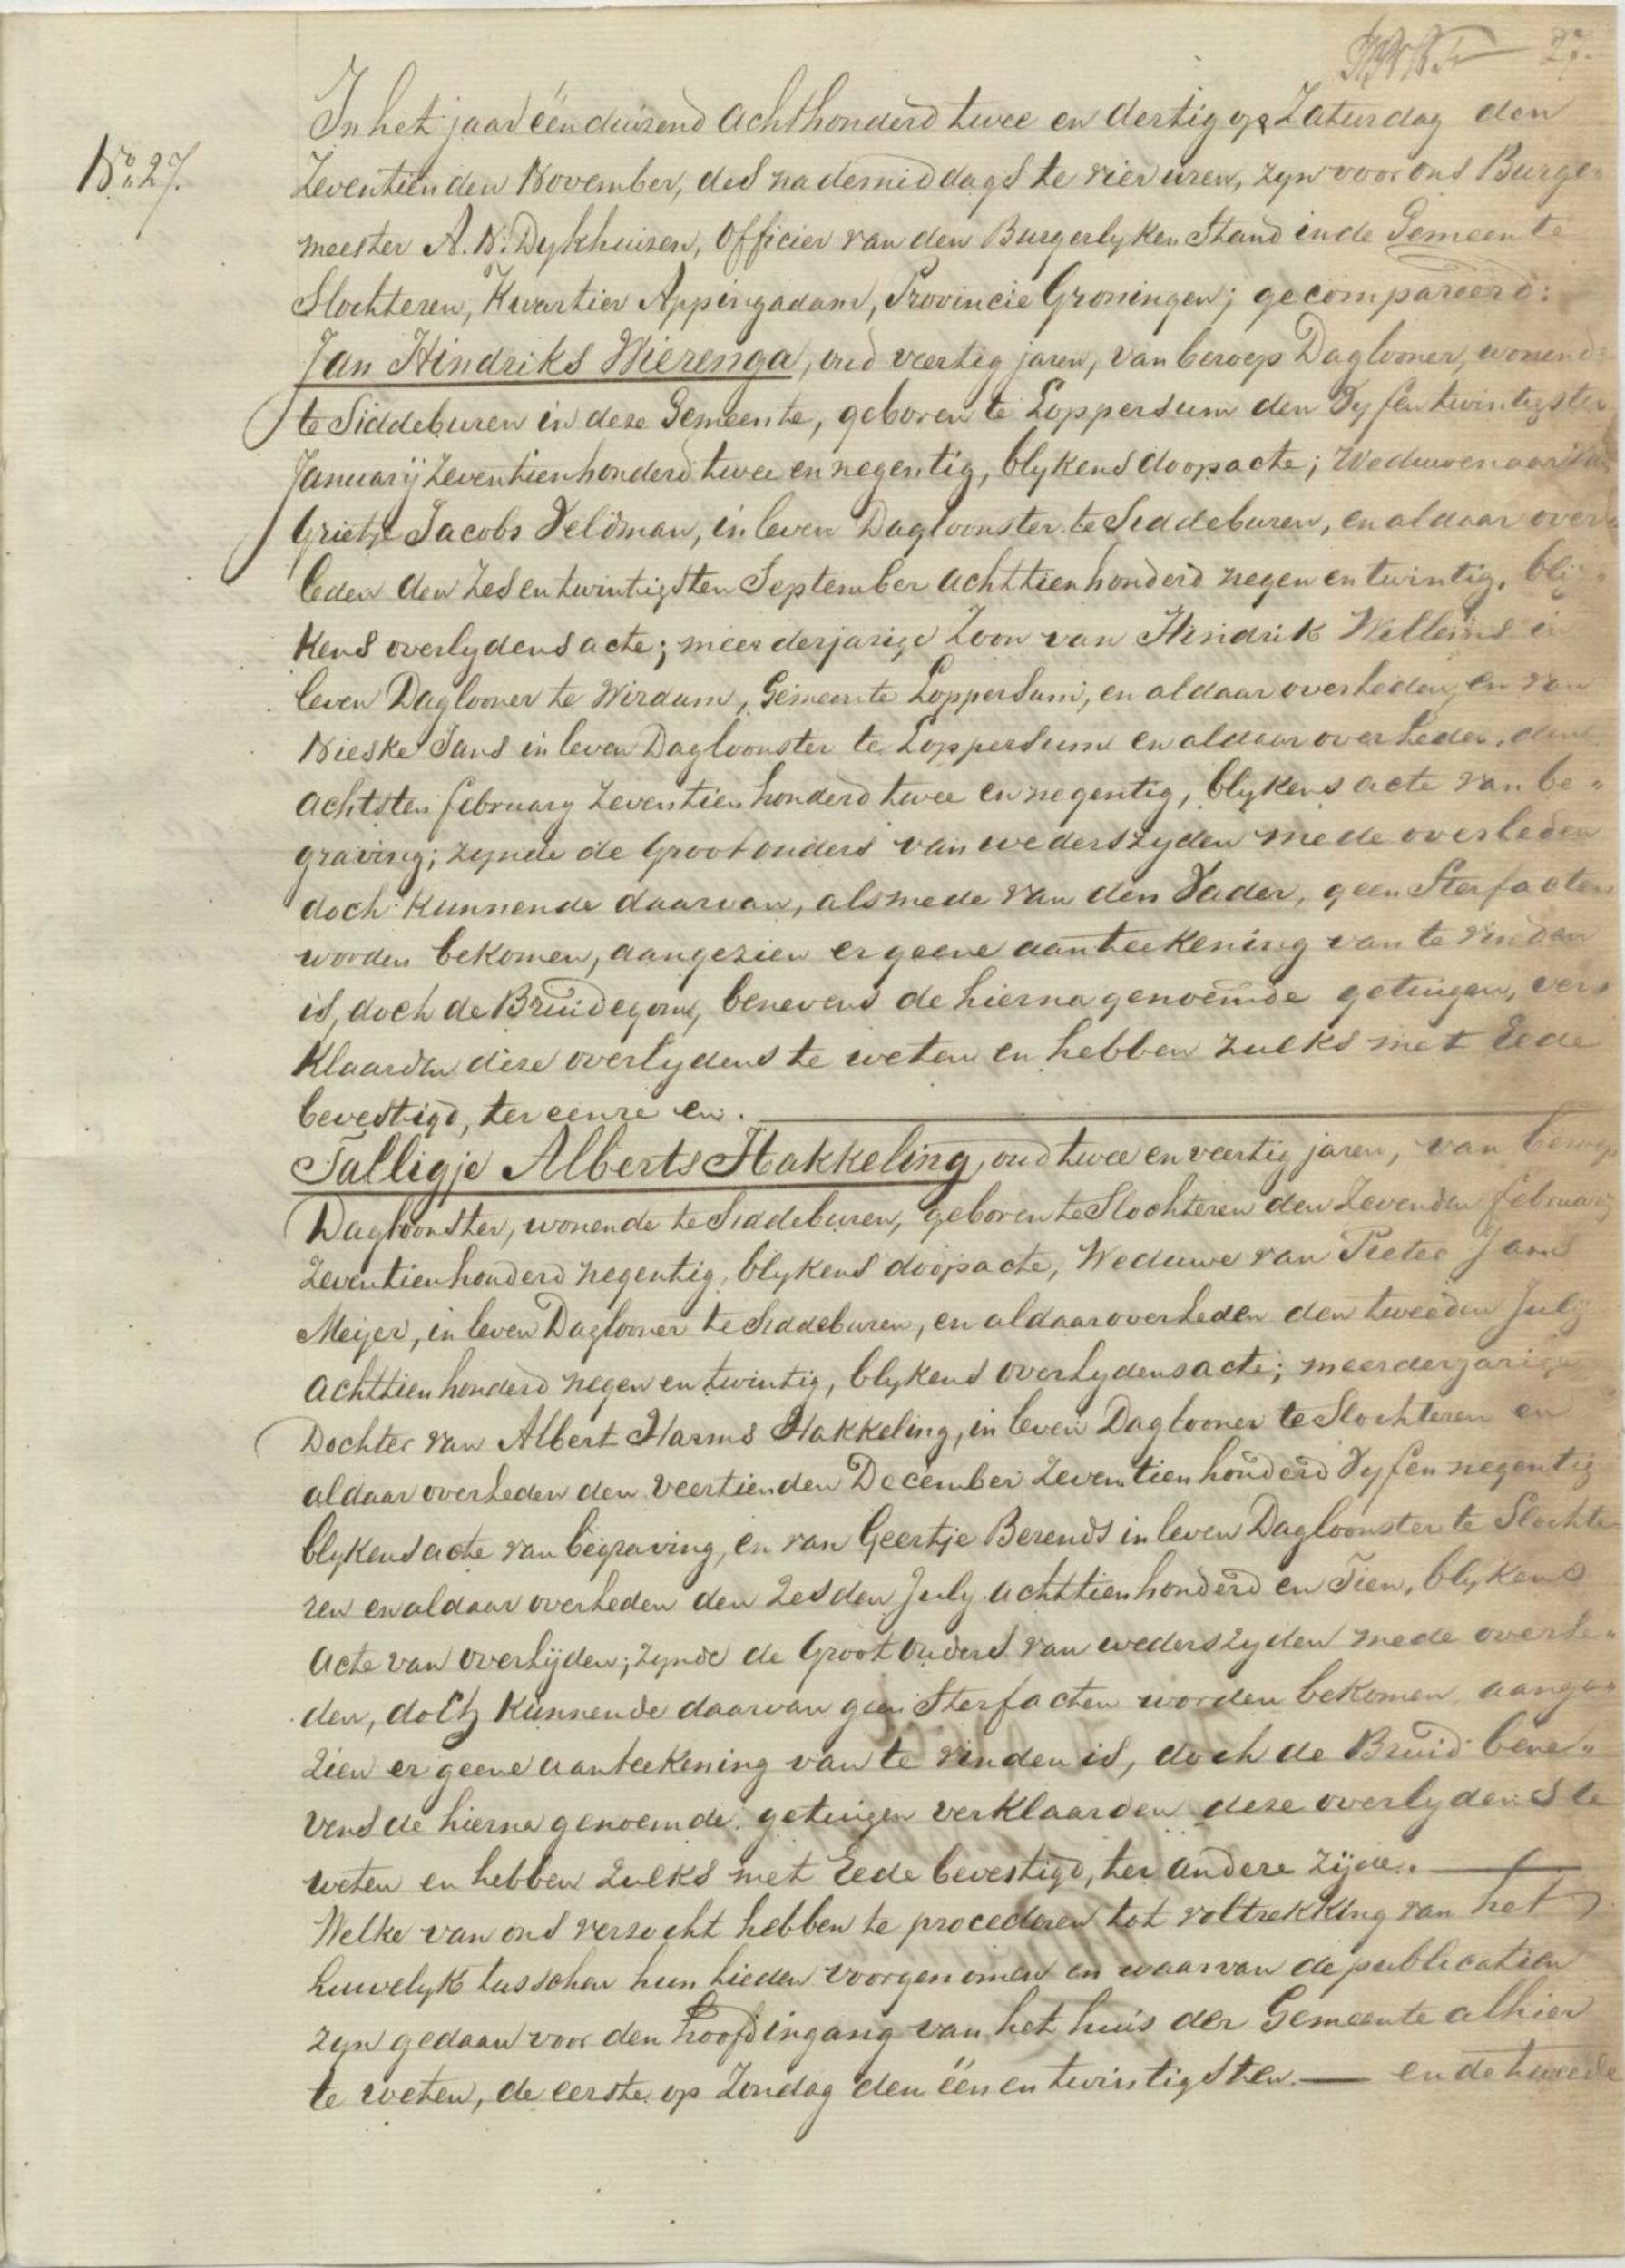 27.
No. 27.
In het jaar ééndúizend achthonderd twee en dertig op Zaturdag den
Zeventienden November, des nademiddags te vier uren, zyn voor ons Burge-
meester A. N. Dykhuizen, Officier van den Burgerlyken Stand in de Gemeente
Slochteren, Kwartier Appingadam, Provincie Groningen; gecompareerd:
Jan Hindriks Wierenga, oud veertig jaren, van beroep Daglooner, wonende
te Siddeburen in deze Gemeente, geboren te Loppersum den Vyfentwintigsten
Januarij Zeventienhonderd twee en negentig, blykens doopacte; Weduwenaar van
Grietje Jacobs Veldman, in leven Dagloonster te Siddeburen, en aldaar over-
leden den Zesentwintigsten September achttienhonderd negen en twintig, bly-
kens overlydensacte; meerderjarige Zoon van Hindrik Willems in
leven Daglooner te Wirdum, Gemeente Loppersum, en aldaar overleden, en van
Nieske Jans in leven Dagloonster te Loppersum en aldaar overleden, den
achtsten february Zeventienhonderd twee en negentig, blykens acte van be-
graving; zynde de Grootouders van wederszyden mede overleden
doch kunnende daarvan, alsmede van den Vader, geen Sterfacten
worden bekomen, aangezien er geene aanteekening van te vinden
is, doch de Bruidegom, benevens de hierna genoemde getuigen, ver-
klaarden deze overlydens te weten en hebben zulks met Eede
bevestigd, ter eenre en.
Talligje Alberts Hakkeling, oud twee en veertig jaren, van beroep
Dagloonster, wonende te Siddeburen, geboren te Slochteren den Zevenden february
Zeventienhonderd negentig, blykens doopacte, Weduwe van Pieter Jans
Meijer, in leven Daglooner te Siddeburen, en aldaar overleden den tweeden July
achttienhonderd negen en twintig, blykens overlydensacte; meerderjarige
Dochter van Albert Harms Hakkeling, in leven Daglooner te Slochteren en
aldaar overleden den veertienden December Zeventienhonderd Vyfennegentig
blykens acte van begraving, en van Geertje Berends in leven Dagloonster te Slochte-
ren en aldaar overleden den Zesden July achttienhonderd en Tien, blykens
acte van overlijden; zynde de Grootouders van wederszyden mede overle-
den, doch kunnende daarvan geen Sterfacten worden bekomen, aange-
zien er geene aanteekening van te vinden is, doch de Bruid bene-
vens de hierna genoemde getuigen verklaarden deze overlydens te
weten en hebben zulks met Eede bevestigd, ter andere zijde.
Welke van ons verzocht hebben te procederen tot voltrekking van het
huwelyk tusschen hun lieden voorgenomen en waarvan de publicatien
zyn gedaan voor den hoofdingang van het huis der Gemeente alhier
te weten, de eerste op Zondag den één en twintigsten — en de tweede